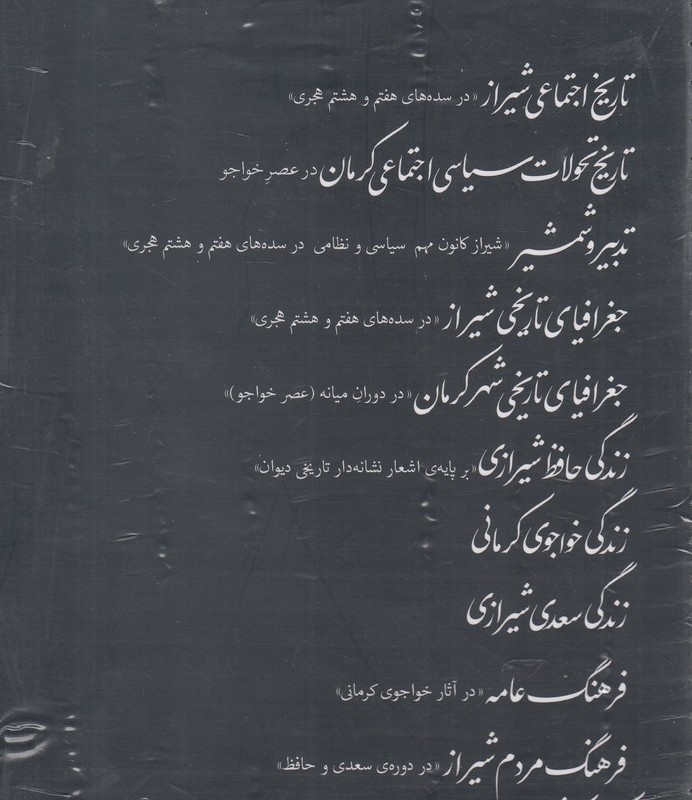 تاریخ اجتماعی شیراز «در سده‌های هفتم و هشتم هجری»
تاریخ تحولات سیاسی اجتماعی کرمان در عصرِ خواجو
تدبیر و شمشیر «شیراز کانون مهم سیاسی و نظامی در سده‌های هفتم و هشتم هجری»
جغرافیای تاریخی شیراز «در سده‌های هفتم و هشتم هجری»
جغرافیای تاریخی شهر کرمان «در دورانِ میانه (عصر خواجو)»
زندگی حافظ شیرازی «بر پایه‌ی اشعار نشانه‌دار تاریخی دیوان»
زندگی خواجوی کرمانی
زندگی سعدی شیرازی
فرهنگ عامه «در آثار خواجوی کرمانی»
فرهنگ مردم شیراز «در دوره‌ی سعدی و حافظ»